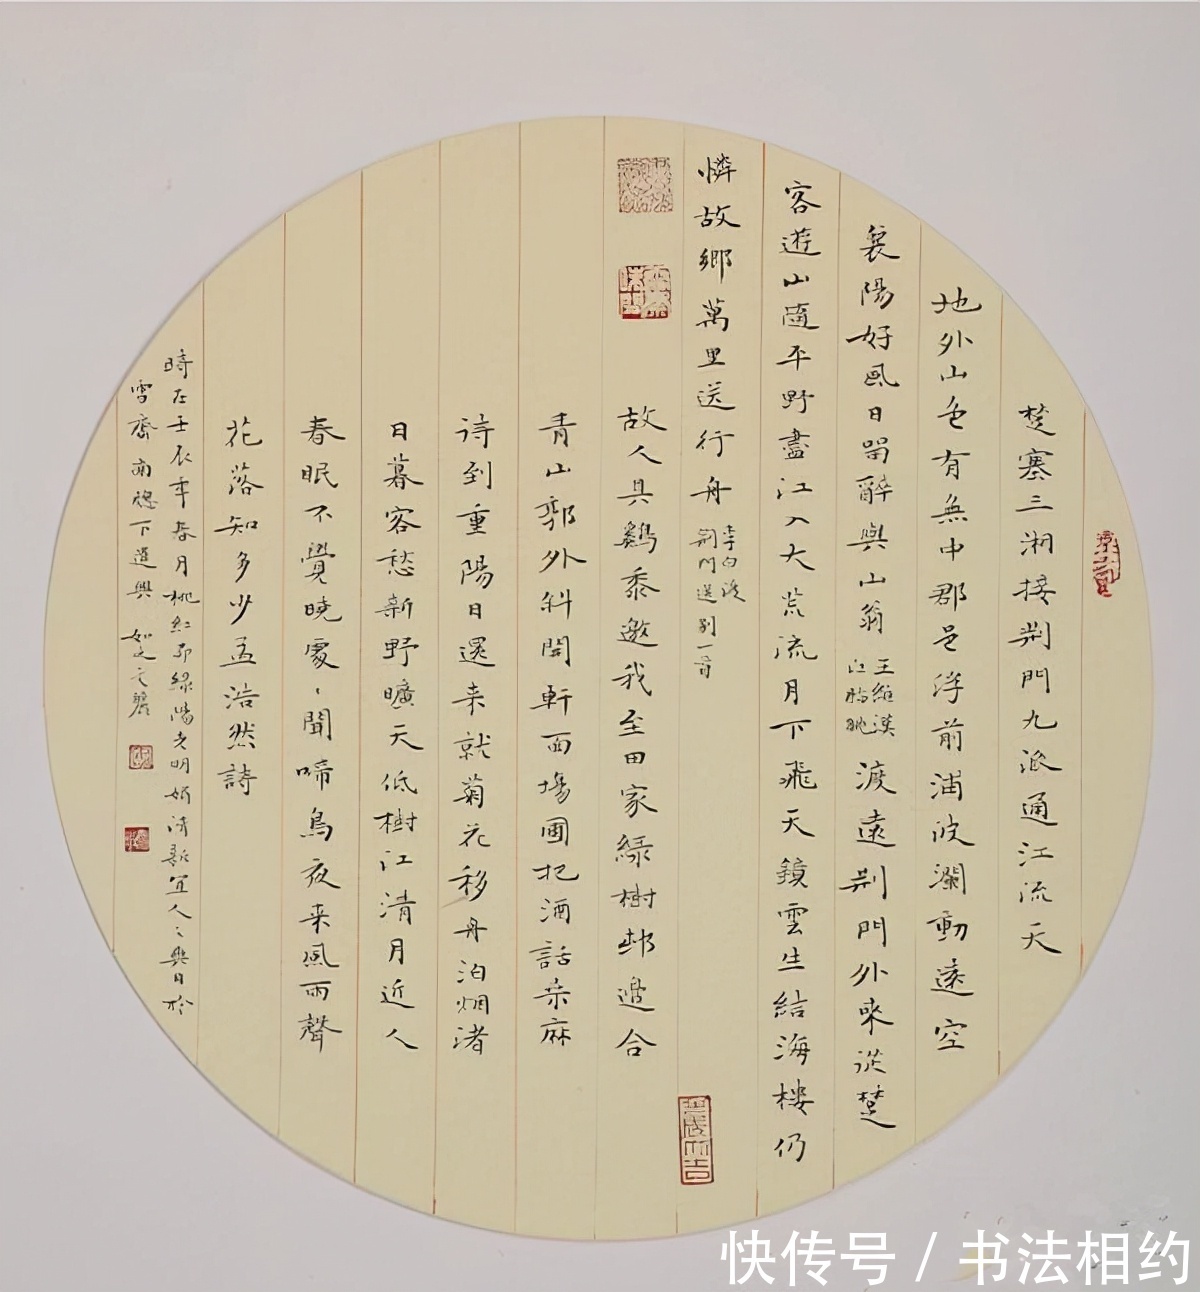 楚塞三湘接荆門九派通江流天
地外山色有無中郡邑浮前浦波瀾動遠空
襄陽好風日留醉與山翁
王維漢
江臨眺
渡遠荆門外來從楚
客遊山随平野盡江入大荒流月下飛天鏡雲生結海樓仍
憐故鄉萬里送行舟
李白渡
荆門送别一首
故人具鷄黍邀我至田家綠樹邨邊合
青山郭外斜開軒面場圃把酒話桑麻
待到重陽日還来就菊花移舟泊烟渚
日暮客愁新野曠天低樹江清月近人
春眠不覺曉處〻聞啼鳥夜来風雨聲
花落知多少孟浩然詩
時在壬辰年春月桃紅柳綠陽光明媚清新宜人之興日於
雪齋南窗下遣興
快传号 / 书法相约